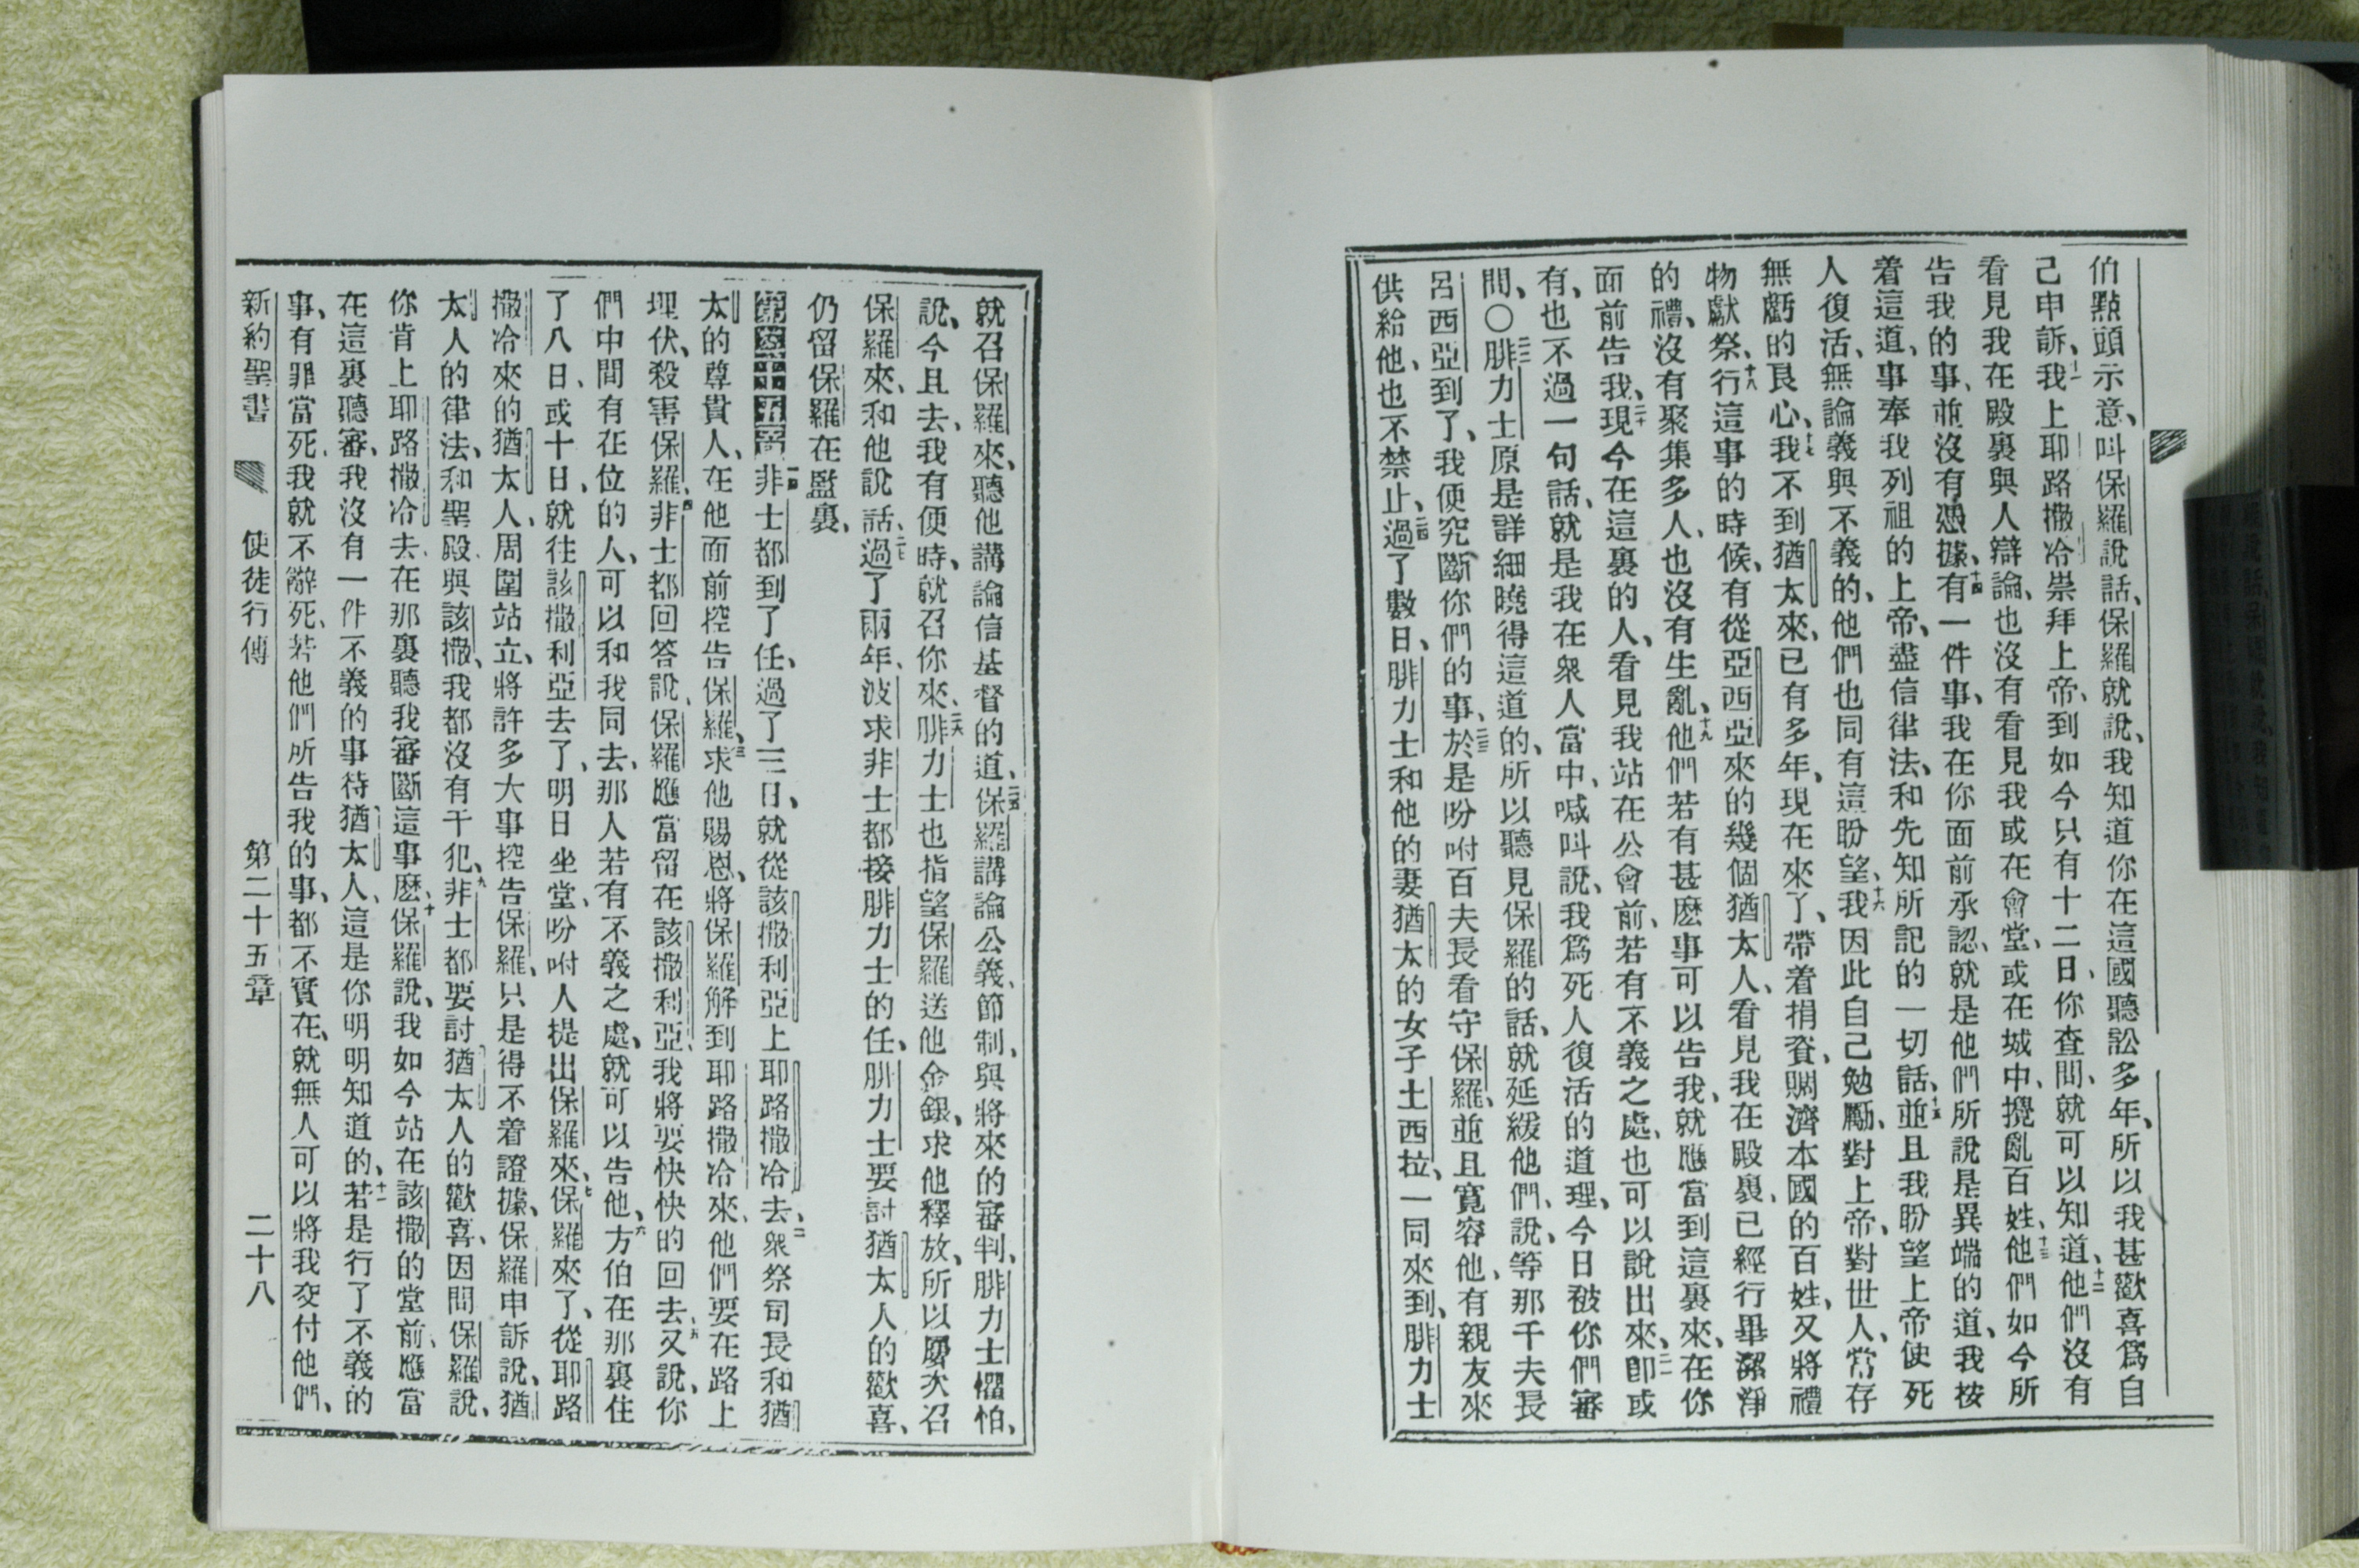 伯點頭示意、叫保羅說話、保羅就說、我知道你在這國聽訟多年、所以我甚歡喜爲自
己申訴、十一我上耶路撒冷崇拜上帝、到如今只有十二日、你查問、就可以知道、十二他們沒有
看見我在殿裏與人辯論、也沒有看見我或在會堂、或在城中、攪亂百姓、十三他們如今所
告我的事、並沒有憑據、十四有一件事、我在你面前承認、就是他們所說是異端的道、我按
着這道、事奉我列祖的上帝、盡信律法、和先知所記的一切話、十五並且我盼望上帝使死
人復活、無論義與不義的、他們也同有這盼望、十六我因此自己勉勵、對上帝、對世人、常存
無虧的良心、十七我不到猶太來、已有多年、現在來了、帶着捐資、賙濟本國的百姓、又將禮
物獻祭、十八行這事的時候、有從亞西亞來的幾個猶太人、看見我在殿裏、已經行畢潔淨
的禮、沒有聚集多人、也沒有生亂、十九他們若有甚麽事可以告我、就應當到這裏來、在你
面前告我、二十現今在這裏的人、看見我站在公會前、若有不義之處、也可以說出來、二一卽或
有、也不過一句話、就是我在衆人當中、喊叫說、我爲死人復活的道理、今日被你們審
問、〇二二腓力士原是詳細曉得這道的、所以聽見保羅的話、就延緩他們、說、等那千夫長
呂西亞到了、我便究斷你們的事、二三於是吩咐百夫長看守保羅、並且寬容他、有親友來
供給他、也不禁止、二四過了數日、腓力士和他的妻猶太的女子土西拉、一同來到、腓力士
就召保羅來、聽他講論信基督的道、二五保羅講論公義、節制、與將來的審判、腓力士懼怕、
說、今且去、我有便時、就召你來、二六腓力士也指望保羅送他金銀、求他釋放、所以屢次召
保羅來、和他說話、二七過了兩年、波求非士都接腓力士的任、腓力士要討猶太人的歡喜、
仍留保羅在監裏、
第二十五章一非士都到了任、過了三日、就從該撒利亞上耶路撒冷去、二衆祭司長和猶
太的尊貴人、在他面前控告保羅、三求他賜恩、將保羅解到耶路撒冷來、他們要在路上
埋伏、殺害保羅、四非士都回答說、保羅應當留在該撒利亞、我將要快快的回去、五又說、你
們中間有在位的人、可以和我同去、那人若有不義之處、就可以告他、六方伯在那裏住
了八日、或十日、就往該撒利亞去了、明日坐堂、吩咐人提出保羅來、七保羅來了、從耶路
撒冷來的猶太人、周圍站立、將許多大事控告保羅、只是得不着證據、保羅申訴說、猶
太人的律法、和聖殿與該撒、我都沒有干犯、九非士都要討猶太人的歡喜、因問保羅說、
你肯上耶路撒冷去、在那裏聽我審斷這事麽、十保羅說、我如今站在該撒的堂前、應當
在這裏聽審、我沒有一件不義的事待猶太人、這是你明明知道的、十一若是行了不義的
事、有罪當死、我就不辭死、若他們所告我的事、都不實在、就無人可以將我交付他們、
新約聖書 使徒行傳 第二十五章 二十八